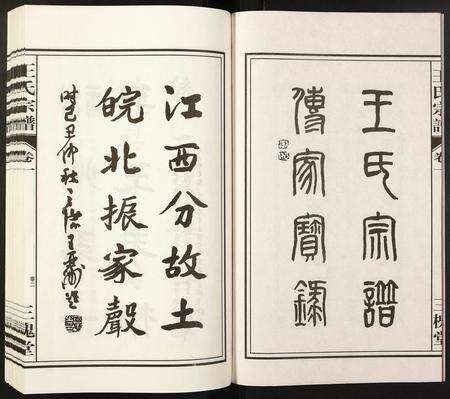 王氏宗譜
傳家寶錄
王氏宗譜
卷
三槐堂
江西分故土
皖北振家聲
時己丑仲秋
王氏宗譜
卷
三槐堂